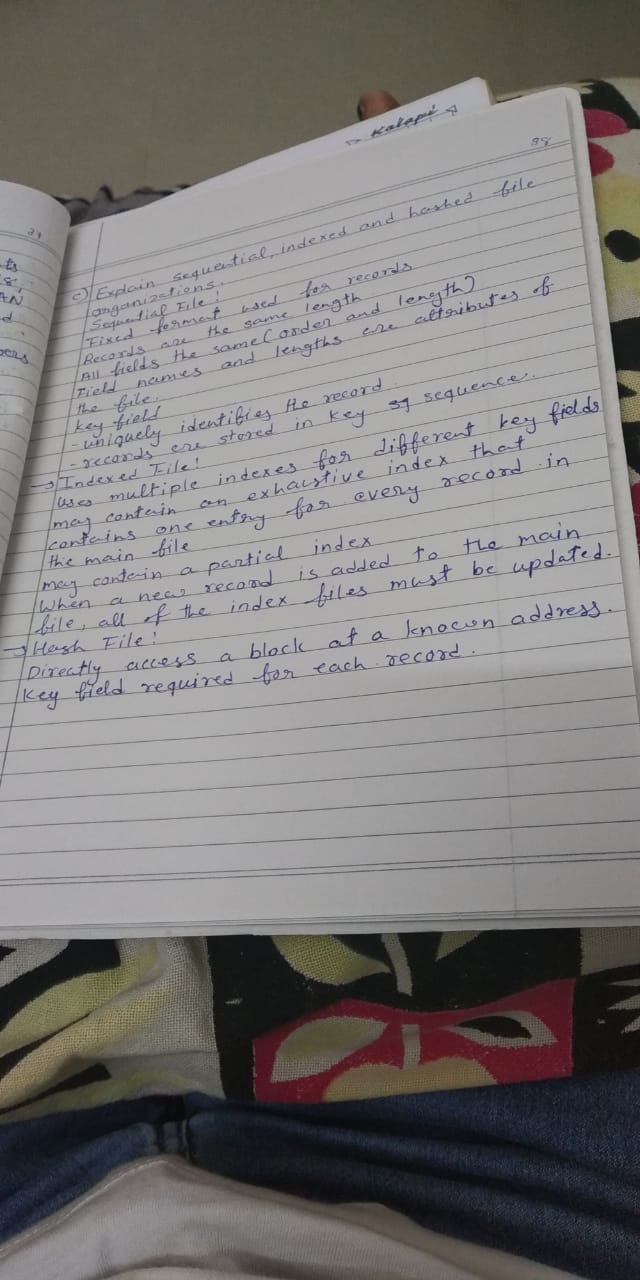 Kalapi
38
c) Explain sequential, indexed and hashed file
organizations.
Sequential File:
Fixed format used for records
Records are the same length
All fields the same (order and length)
Field names and lengths are attributes of
the file.
Key field
- uniquely identifies the record
- records are stored in key sq sequence.
→ Indexed File:
Uses multiple indexes for different key fields
may contain an exhaustive index that
contains one entry for every record in
the main file
may contain a partial index
When a new record is added to the main
file, all of the index files must be updated.
→ Hash File:
Directly access a block at a known address.
Key field required for each record.